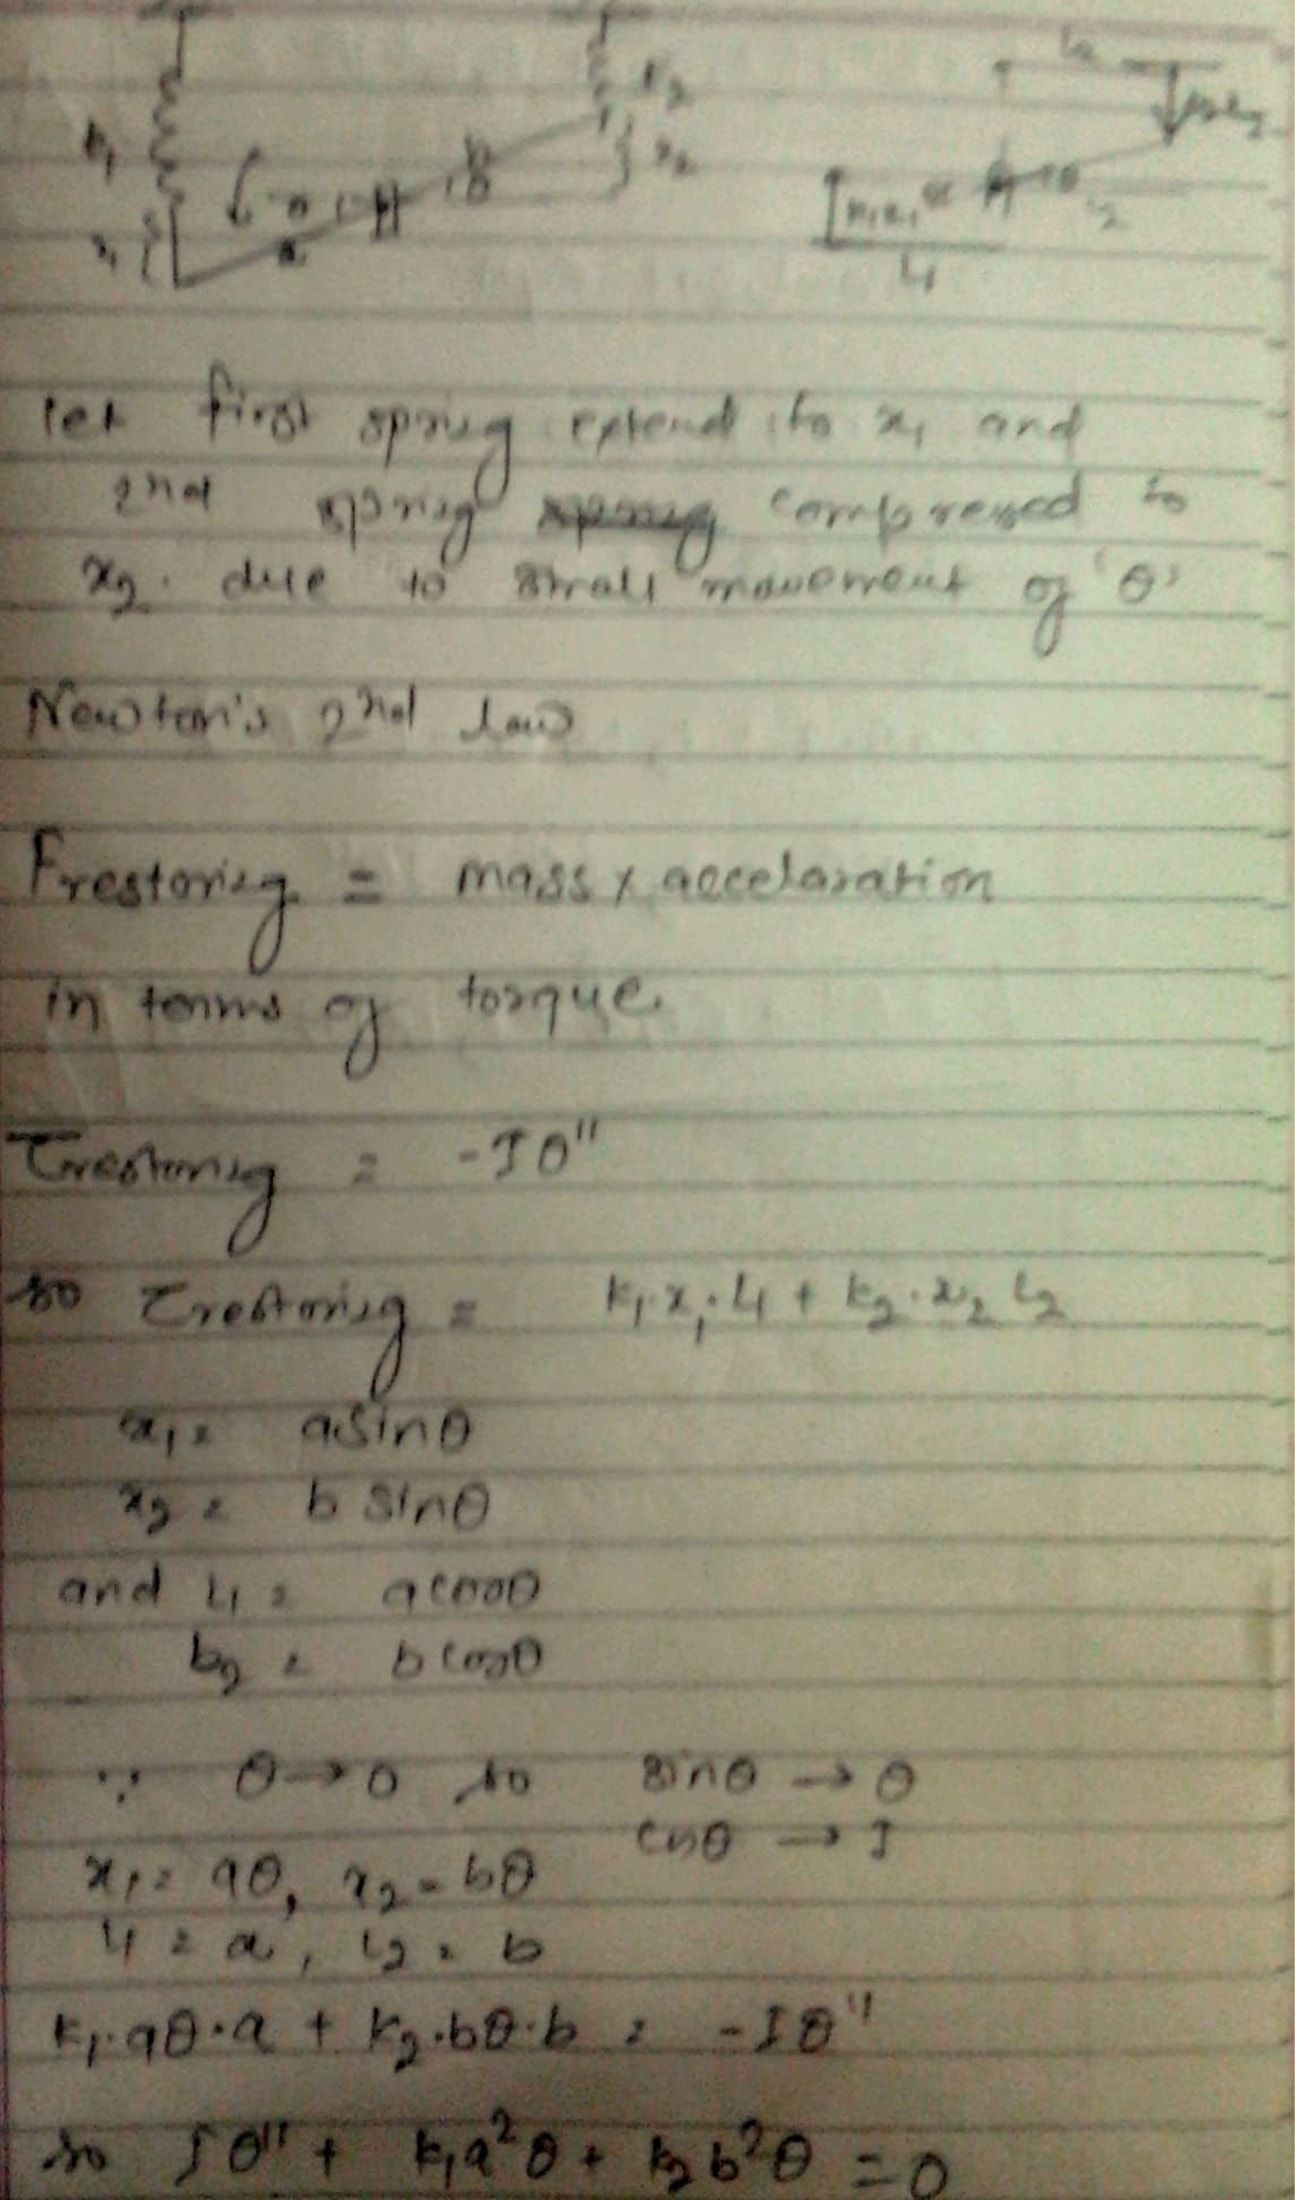 K₂
x₂
θ
θ
L₂
L₁
let first spring extend to x₁ and
2nd spring compressed to
x₂ due to small movement of 'θ'
Newton's 2nd law
Frestoring = mass x accelaration
in terms of torque.
τrestoring = -Iθ''
so τrestoring = k₁.x₁.L₁ + k₂.x₂ L₂
x₁ = asinθ
x₂ = b sinθ
and L₁ = acosθ
b₂ = b cosθ
∵ θ→0 so sinθ → θ
cosθ → 1
x₁ = aθ, x₂ = bθ
L₁ = a, L₂ = b
k₁.aθ.a + k₂.bθ.b = -Iθ''
so Iθ'' + k₁a²θ + k₂b²θ = 0